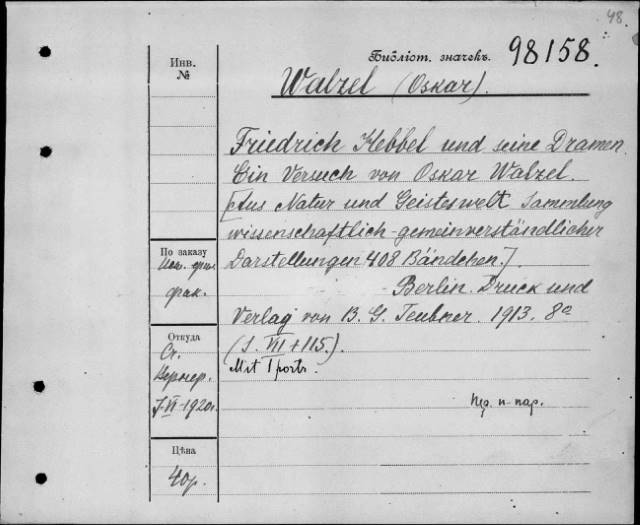 48.
Инв.
№
Библіот. значекъ. 98158.
Walzel (Oskar).
Friedrich Hebbel und seine Dramen.
Ein Versuch von Oskar Walzel.
[Aus Natur und Geisteswelt Sammlung
wissenschaftlich-gemeinverständlicher
Darstellungen 408 Bändchen.]
Berlin. Druck und
Verlag von B. G. Teubner. 1913. 8º
(S. VI + 115.).
Mit 1 portr.
По заказу
фак.
Откуда
Ст.
VI-1920г.
Цѣна
40р.